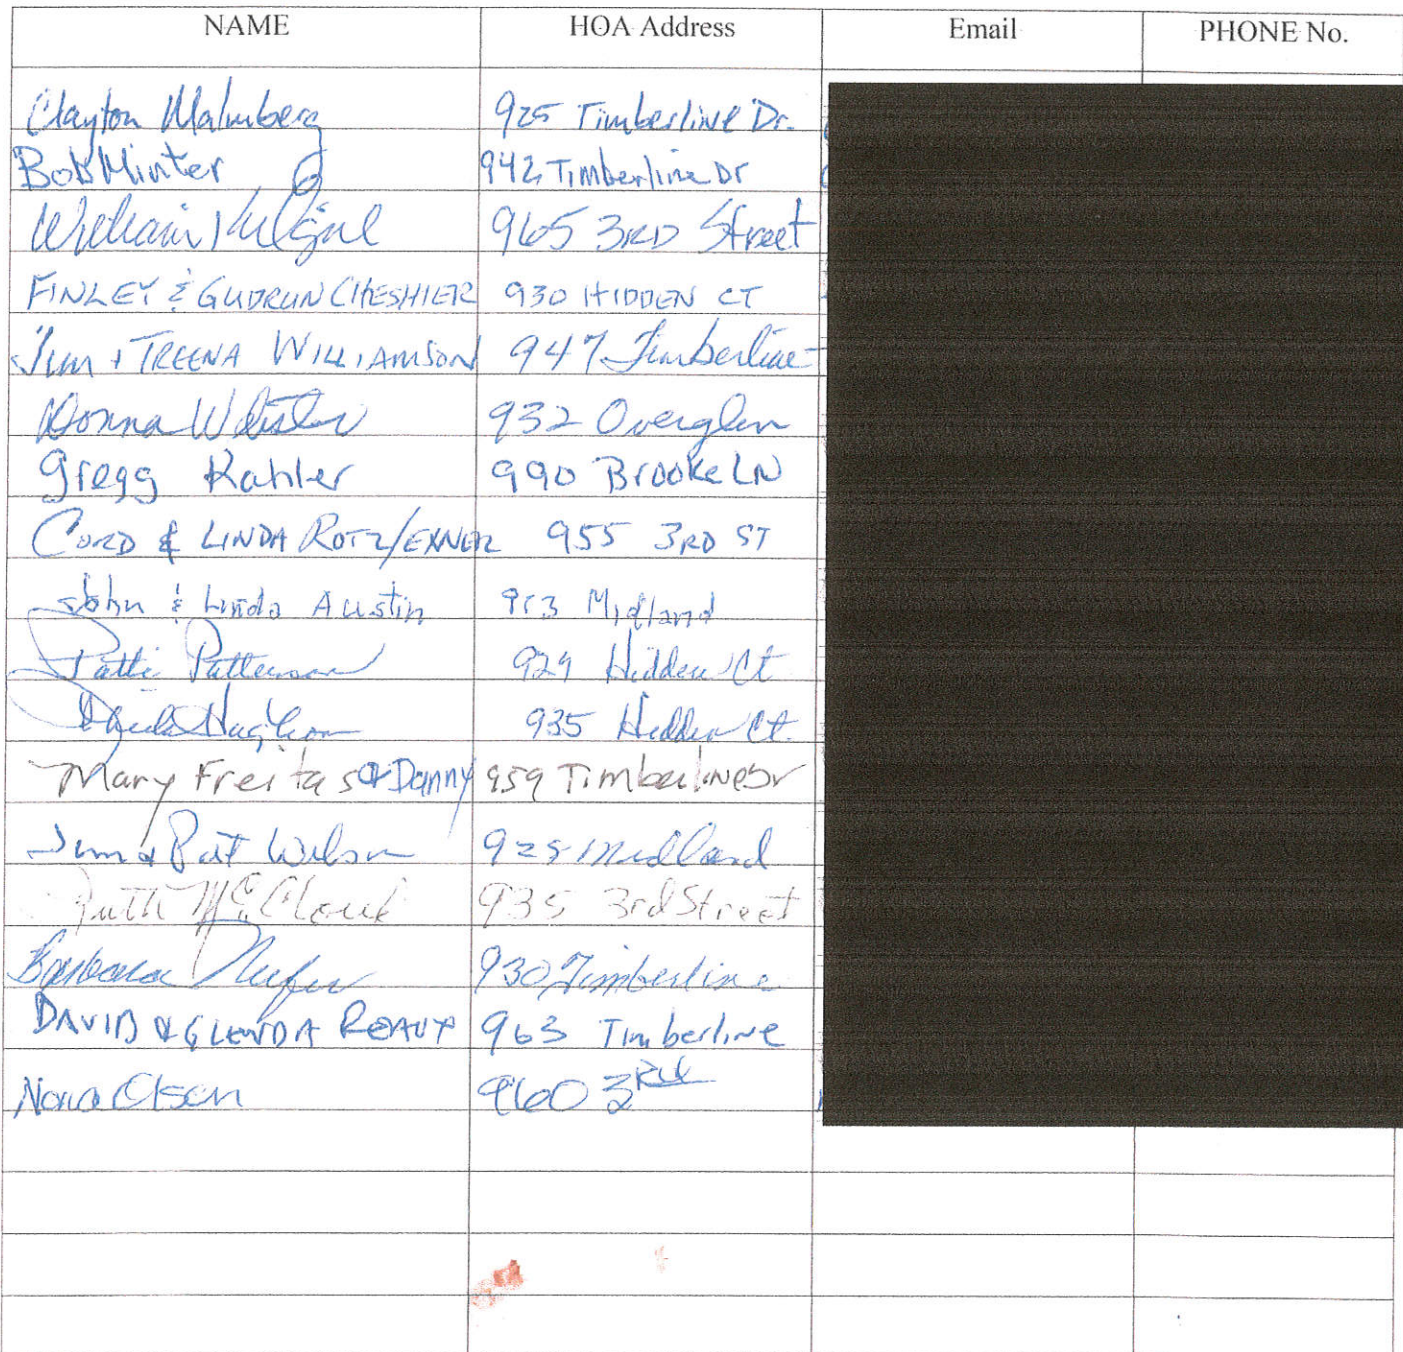 NAME HOA Address Email PHONE No.
Clayton Malmberg 925 Timberline Dr.
Bob Minter 942 Timberline Dr
William 965 3RD Street
FINLEY & GUDRUN CHESHIER 930 HIDDEN CT
Jim + TREENA WILLIAMSON 947 Timberline
Donna Webster 932 Overglen
Gregg Kahler 990 Brooke LN
CORD & LINDA ROTZ/EXNER 955 3RD ST
John & Linda Austin Midland
Patti Patterson 929 Hidden Ct
935 Hidden Ct.
Mary Freitas & Danny 959 Timberline Dr
Jim & Pat Wilson 925 Midland
Ruth McCloud 935 3rd Street
Barbara 930 Timberline
DAVID & GLENDA REAUX 963 Timberline
Nona Olsen 960 3rd